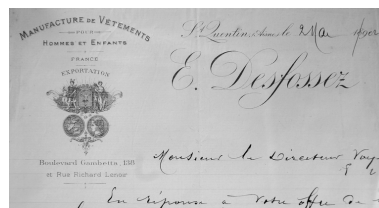 MANUFACTURE DE VÊTEMENTS
POUR
HOMMES ET ENFANTS
FRANCE
EXPORTATION
Boulevard Gambetta, 138
et Rue Richard Lenoir
St Quentin, (Aisne), le 2 Mai
E. Desfossez
Monsieur le Directeur
En réponse à votre offre de